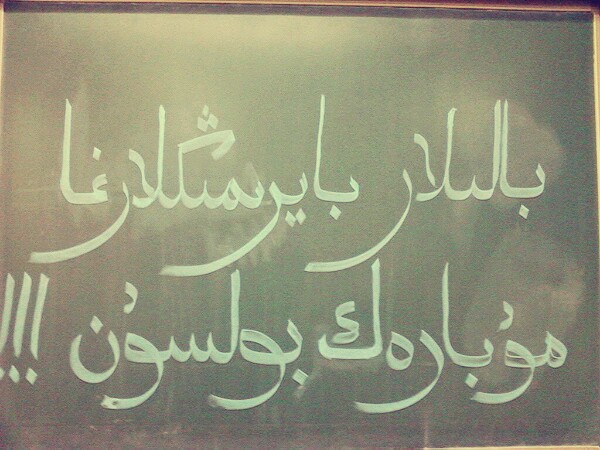 بالىلار بايرىمىڭلارغا
مۇبارەك بولسۇن !!!